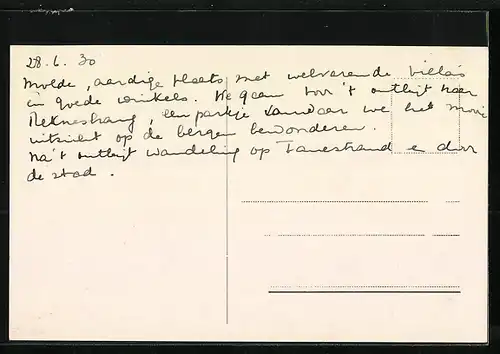 28.6.30
Molde, aardige plaats met welvarende villa's
en goede winkels. We gaan voor 't ontbijt naar
Rekneshaug, een parkje vanwaar we het mooie
uitzicht op de bergen bewonderen.
Na 't ontbijt wandeling op Fanestrand e door
de stad.